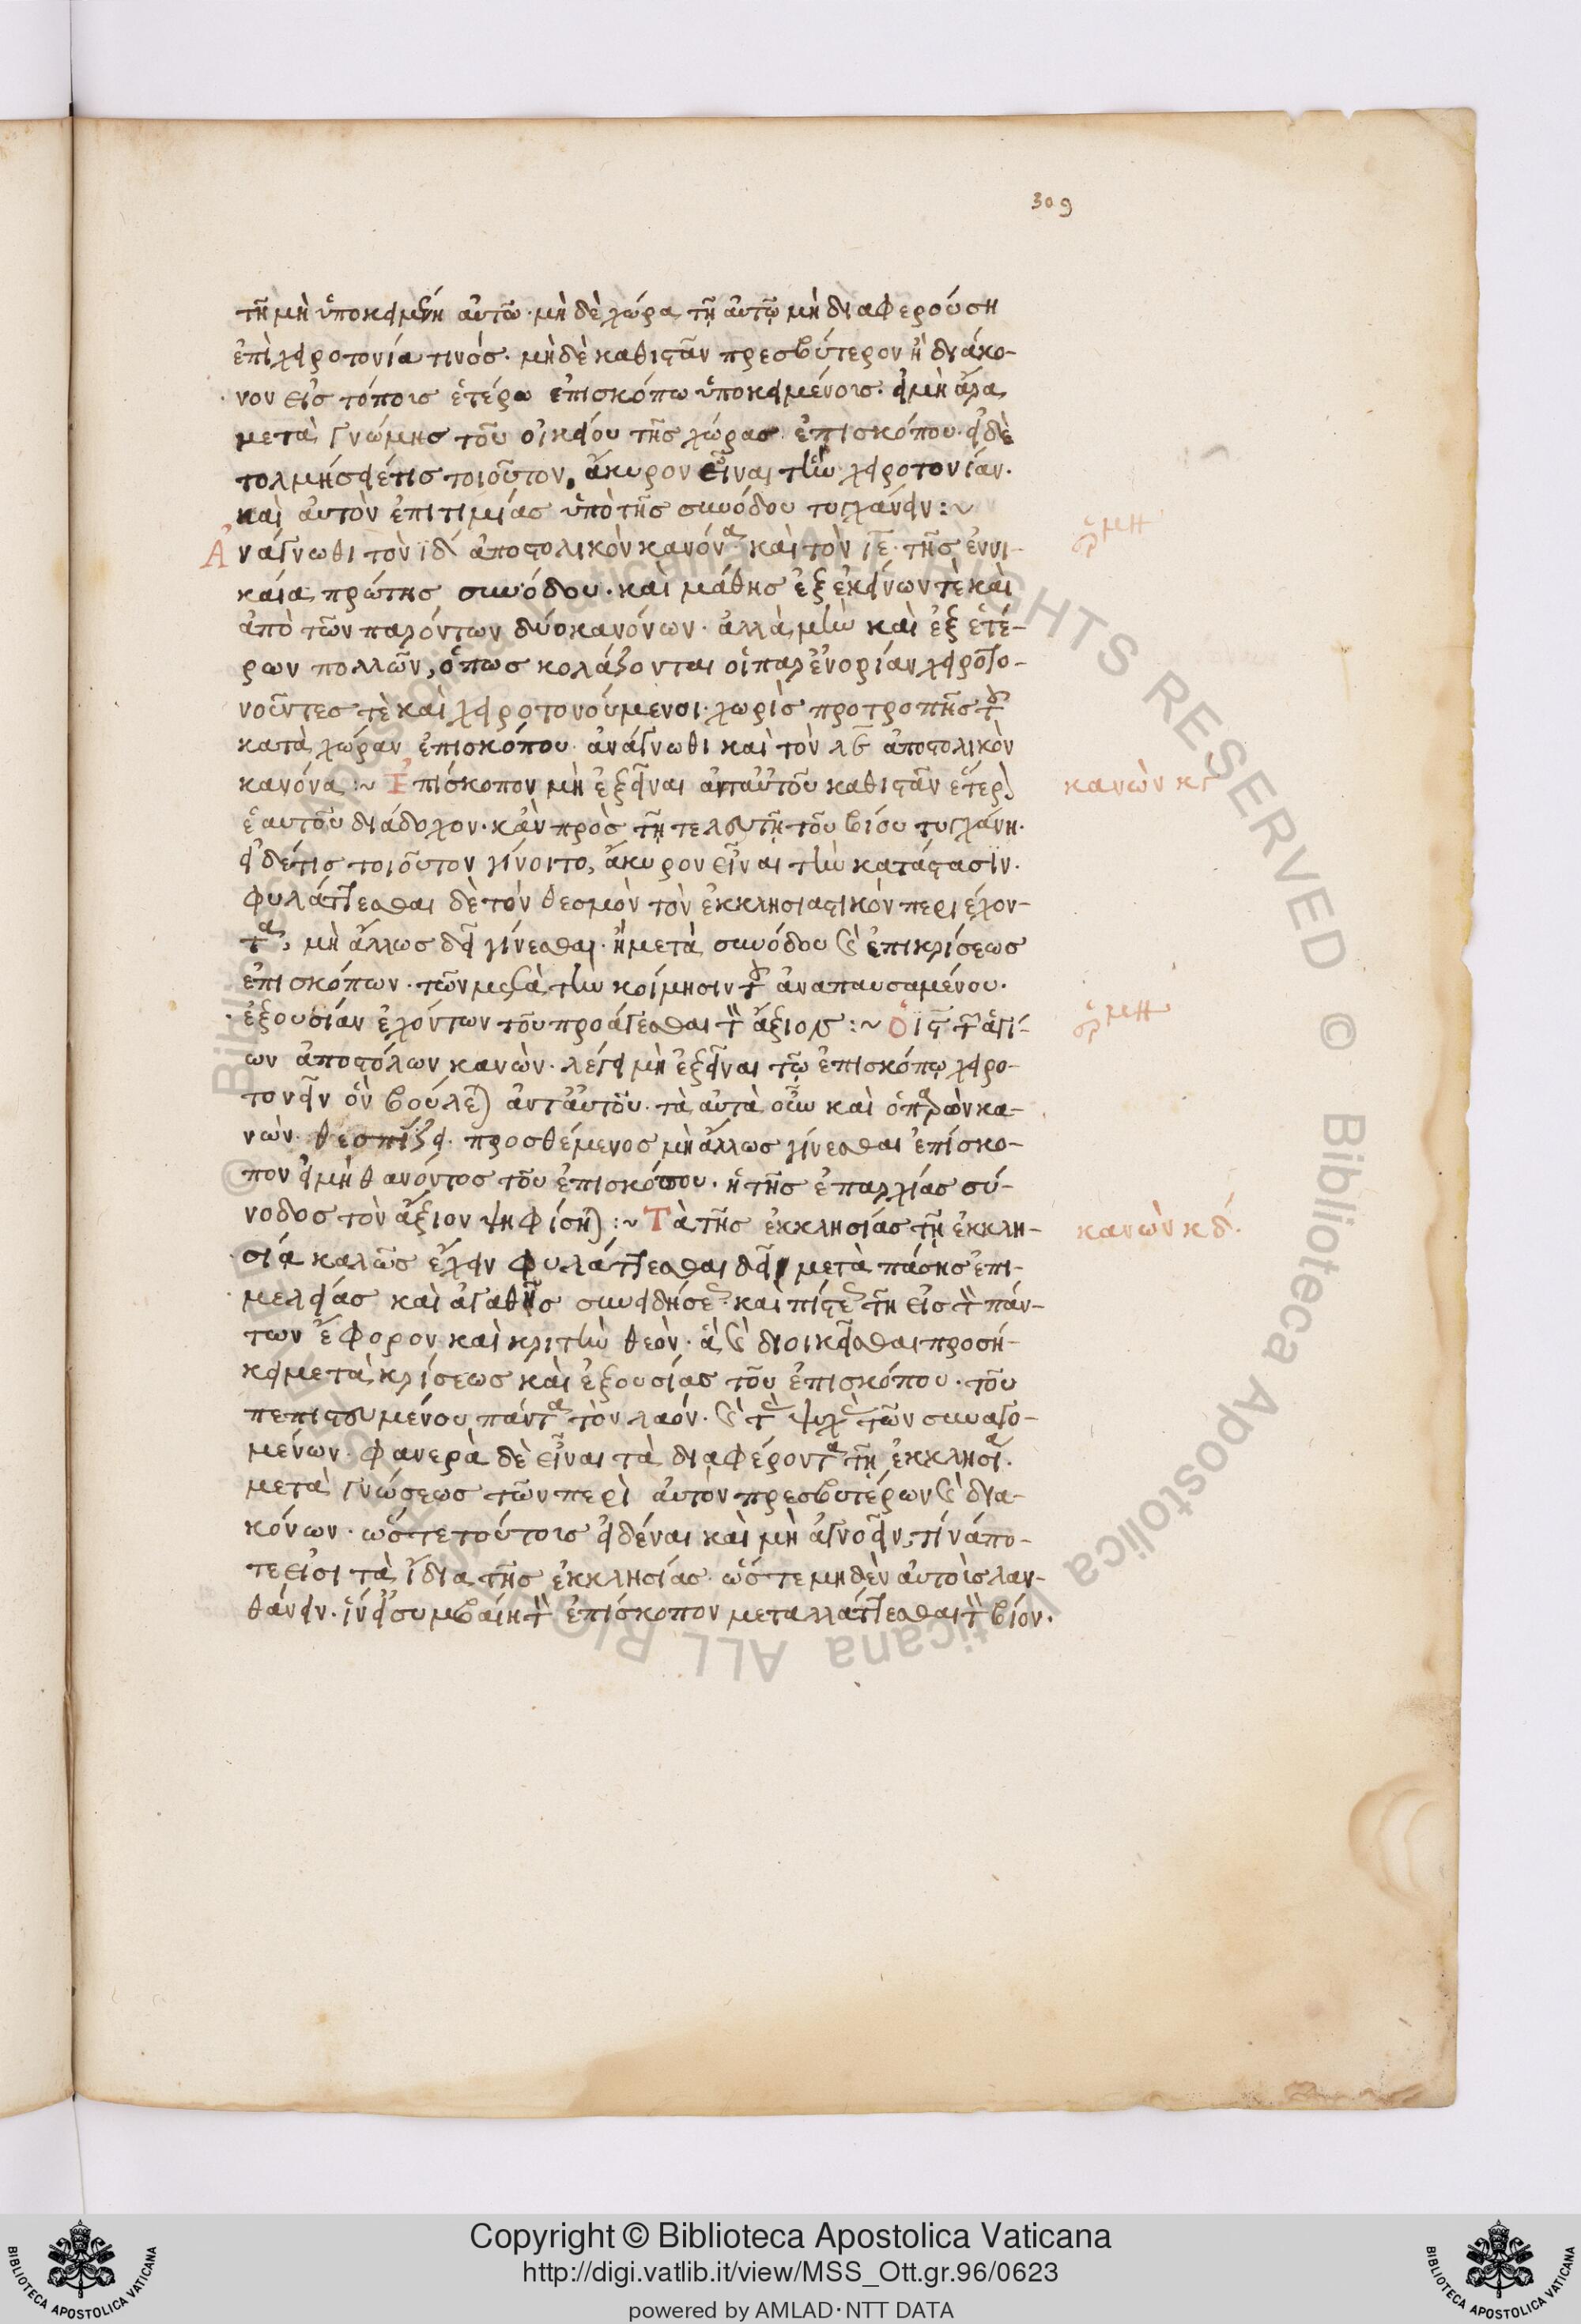 309
τῆ μὴ ὑποκειμένη αὐτῶ· μὴ δὲ χώρα τῆ αὐτῷ μὴ διαφερούση
ἐπὶ χειροτονία τινός· μὴ δὲ καθιστᾶν πρεσβύτερον ἢ διάκο-
νον εἰς τόποις ἑτέρω ἐπισκόπω ὑποκειμένοις· εἰ μὴ ἄρα
μετὰ γνώμης τοῦ οἰκείου τῆς χώρας ἐπισκόπου· εἰ δὲ
τολμήσειέ τις τοιοῦτον, ἄκυρον εἶναι τὴν χειροτονίαν.
καὶ αὐτὸν ἐπιτιμίας ὑπὸ τῆς συνόδου τυγχάνειν :~
Ἀνάγνωθι τὸν ιδ ἀποστολικὸν κανόνα· καὶ τὸν ιε· τῆς ἐν νι-
ἑρμη
καία πρώτης συνόδου· καὶ μάθης ἐξ ἐκείνων τὲ καὶ
ἀπὸ τῶν παρόντων δύο κανόνων· ἀλλὰ μὴν καὶ ἐξ ἑτέ-
ρων πολλῶν, ὅπως κολάζονται οἱ παρ ἐνορίαν χειροτο-
νοῦντες τὲ καὶ χειροτονούμενοι· χωρὶς προτροπῆς τοῦ
κατὰ χώραν ἐπισκόπου· ἀνάγνωθι καὶ τὸν λε ἀποστολικὸν
κανόνα :~ Ἐπίσκοπον μὴ ἐξεῖναι ἀντ αὐτοῦ καθιστᾶν ἕτερον
κανὼν κγ
ἑαυτοῦ διάδοχον· κἂν πρὸς τῇ τελευτῇ τοῦ βίου τυγχάνη·
εἰ δέ τις τοιοῦτον γίνοιτο, ἄκυρον εἶναι τὴν κατάστασιν.
φυλάττεσθαι δὲ τὸν θεσμὸν τὸν ἐκκλησιαστικὸν περιέχον-
τα, μὴ ἄλλως δεῖ γίνεσθαι· ἢ μετὰ συνόδου καὶ ἐπικρίσεως
ἐπισκόπων· τῶν μετὰ τὴν κοίμησιν τοῦ ἀναπαυσαμένου·
ἐξουσίαν ἐχόντων τοῦ προάγεσθαι τὸν ἄξιον :~ Ὁ ις τῶν ἁγί-
ἑρμη
ων ἀποστόλων κανὼν· λέγει μὴ ἐξεῖναι τῷ ἐπισκόπῳ χειρο-
τονεῖν ὃν βούλεται ἀντ αὐτοῦ· τὰ αὐτὰ οὖν καὶ ὁ παρὼν κα-
νὼν θεσπίζει· προσθέμενος μὴ ἄλλως γίνεσθαι ἐπίσκο-
πον εἰ μὴ θανόντος τοῦ ἐπισκόπου· ἡ τῆς ἐπαρχίας σύ-
νοδος τὸν ἄξιον ψηφίσηται :~ Τὰ τῆς ἐκκλησίας τῇ ἐκκλη-
κανὼν κδ.
σία καλῶς ἔχειν φυλάττεσθαι δεῖ μετὰ πάσης ἐπι-
μελείας καὶ ἀγαθῆς συνειδήσεως· καὶ πίστεως τῆ εἰς τὸν πάν-
των ἔφορον καὶ κριτὴν θεόν· ἃ καὶ διοικεῖσθαι προσή-
κει μετὰ κρίσεως καὶ ἐξουσίας τοῦ ἐπισκόπου· τοῦ
πεπιστουμένου πάντα τὸν λαόν· καὶ τὰς ψυχὰς τῶν συναγο-
μένων· φανερὰ δὲ εἶναι τὰ διαφέροντα τῇ ἐκκλησία·
μετὰ γνώσεως τῶν περὶ αὐτὸν πρεσβυτέρων καὶ δια-
κόνων· ὥστε τούτοις εἰδέναι καὶ μὴ ἀγνοεῖν, τίνά πο-
τε εἰσι τὰ ἴδια τῆς ἐκκλησίας· ὥστε μηδὲν αὐτοὶς λαν-
θάνειν· ἵν εἰ συμβαίη τὸν ἐπίσκοπον μεταλλάττεσθαι τὸν βίον·
Copyright © Biblioteca Apostolica Vaticana
http://digi.vatlib.it/view/MSS_Ott.gr.96/0623
powered by AMLAD·NTT DATA